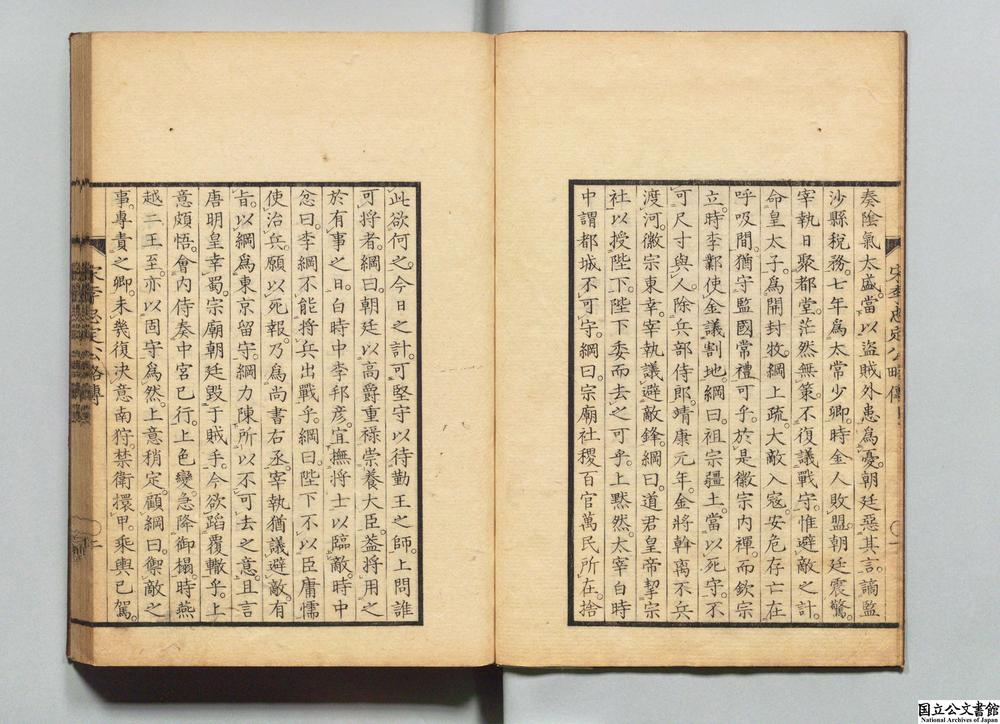 奏陰氣太盛。當以盜賊外患爲憂。朝廷惡其言。謫監
沙縣稅務。七年爲太常少卿。時金人敗盟。朝廷震驚。
宰執日聚都堂。茫然無策。不復議戰守。惟避敵之計。
命皇太子爲開封牧。綱上疏。大敵入寇。安危存亡在
呼吸間。猶守監國常禮可乎。於是徽宗内禪。而欽宗
立。時李鄴使金議割地。綱曰。祖宗疆土。當以死守。不
可尺寸與人。除兵部侍郎。靖康元年。金將斡离不兵
渡河。徽宗東幸。宰執議避敵鋒。綱曰。道君皇帝挈宗
社以授陛下。陛下委而去之可乎。上默然。太宰白時
中謂都城不可守。綱曰。宗廟社稷百官萬民所在。捨
此欲何之。今日之計。可堅守以待勤王之師。上問誰
可將者。綱曰。朝廷以高爵重祿崇養大臣。葢將用之
於有事之日。白時中李邦彦。宜撫將士以臨敵。時中
忿曰。李綱不能將兵出戰乎。綱曰。陛下不以臣庸懦
使治兵。願以死報。乃爲尚書右丞。宰執猶議避敵。有
旨。以綱爲東京留守。綱力陳所以不可去之意。且言
唐明皇幸蜀。宗廟朝廷毀于賊手。今欲蹈覆轍乎。上
意頗悟。會内侍奏中宮已行。上色變。急降御榻。時燕
越二王至。亦以固守爲然。上意稍定。顧綱曰。禦敵之
事。專責之卿。未幾復決意南狩。禁衛擐甲。乘輿已駕。
宋李忠定公略傳
二
宋李忠定公略傳
國立公文書館
National Archives of Japan